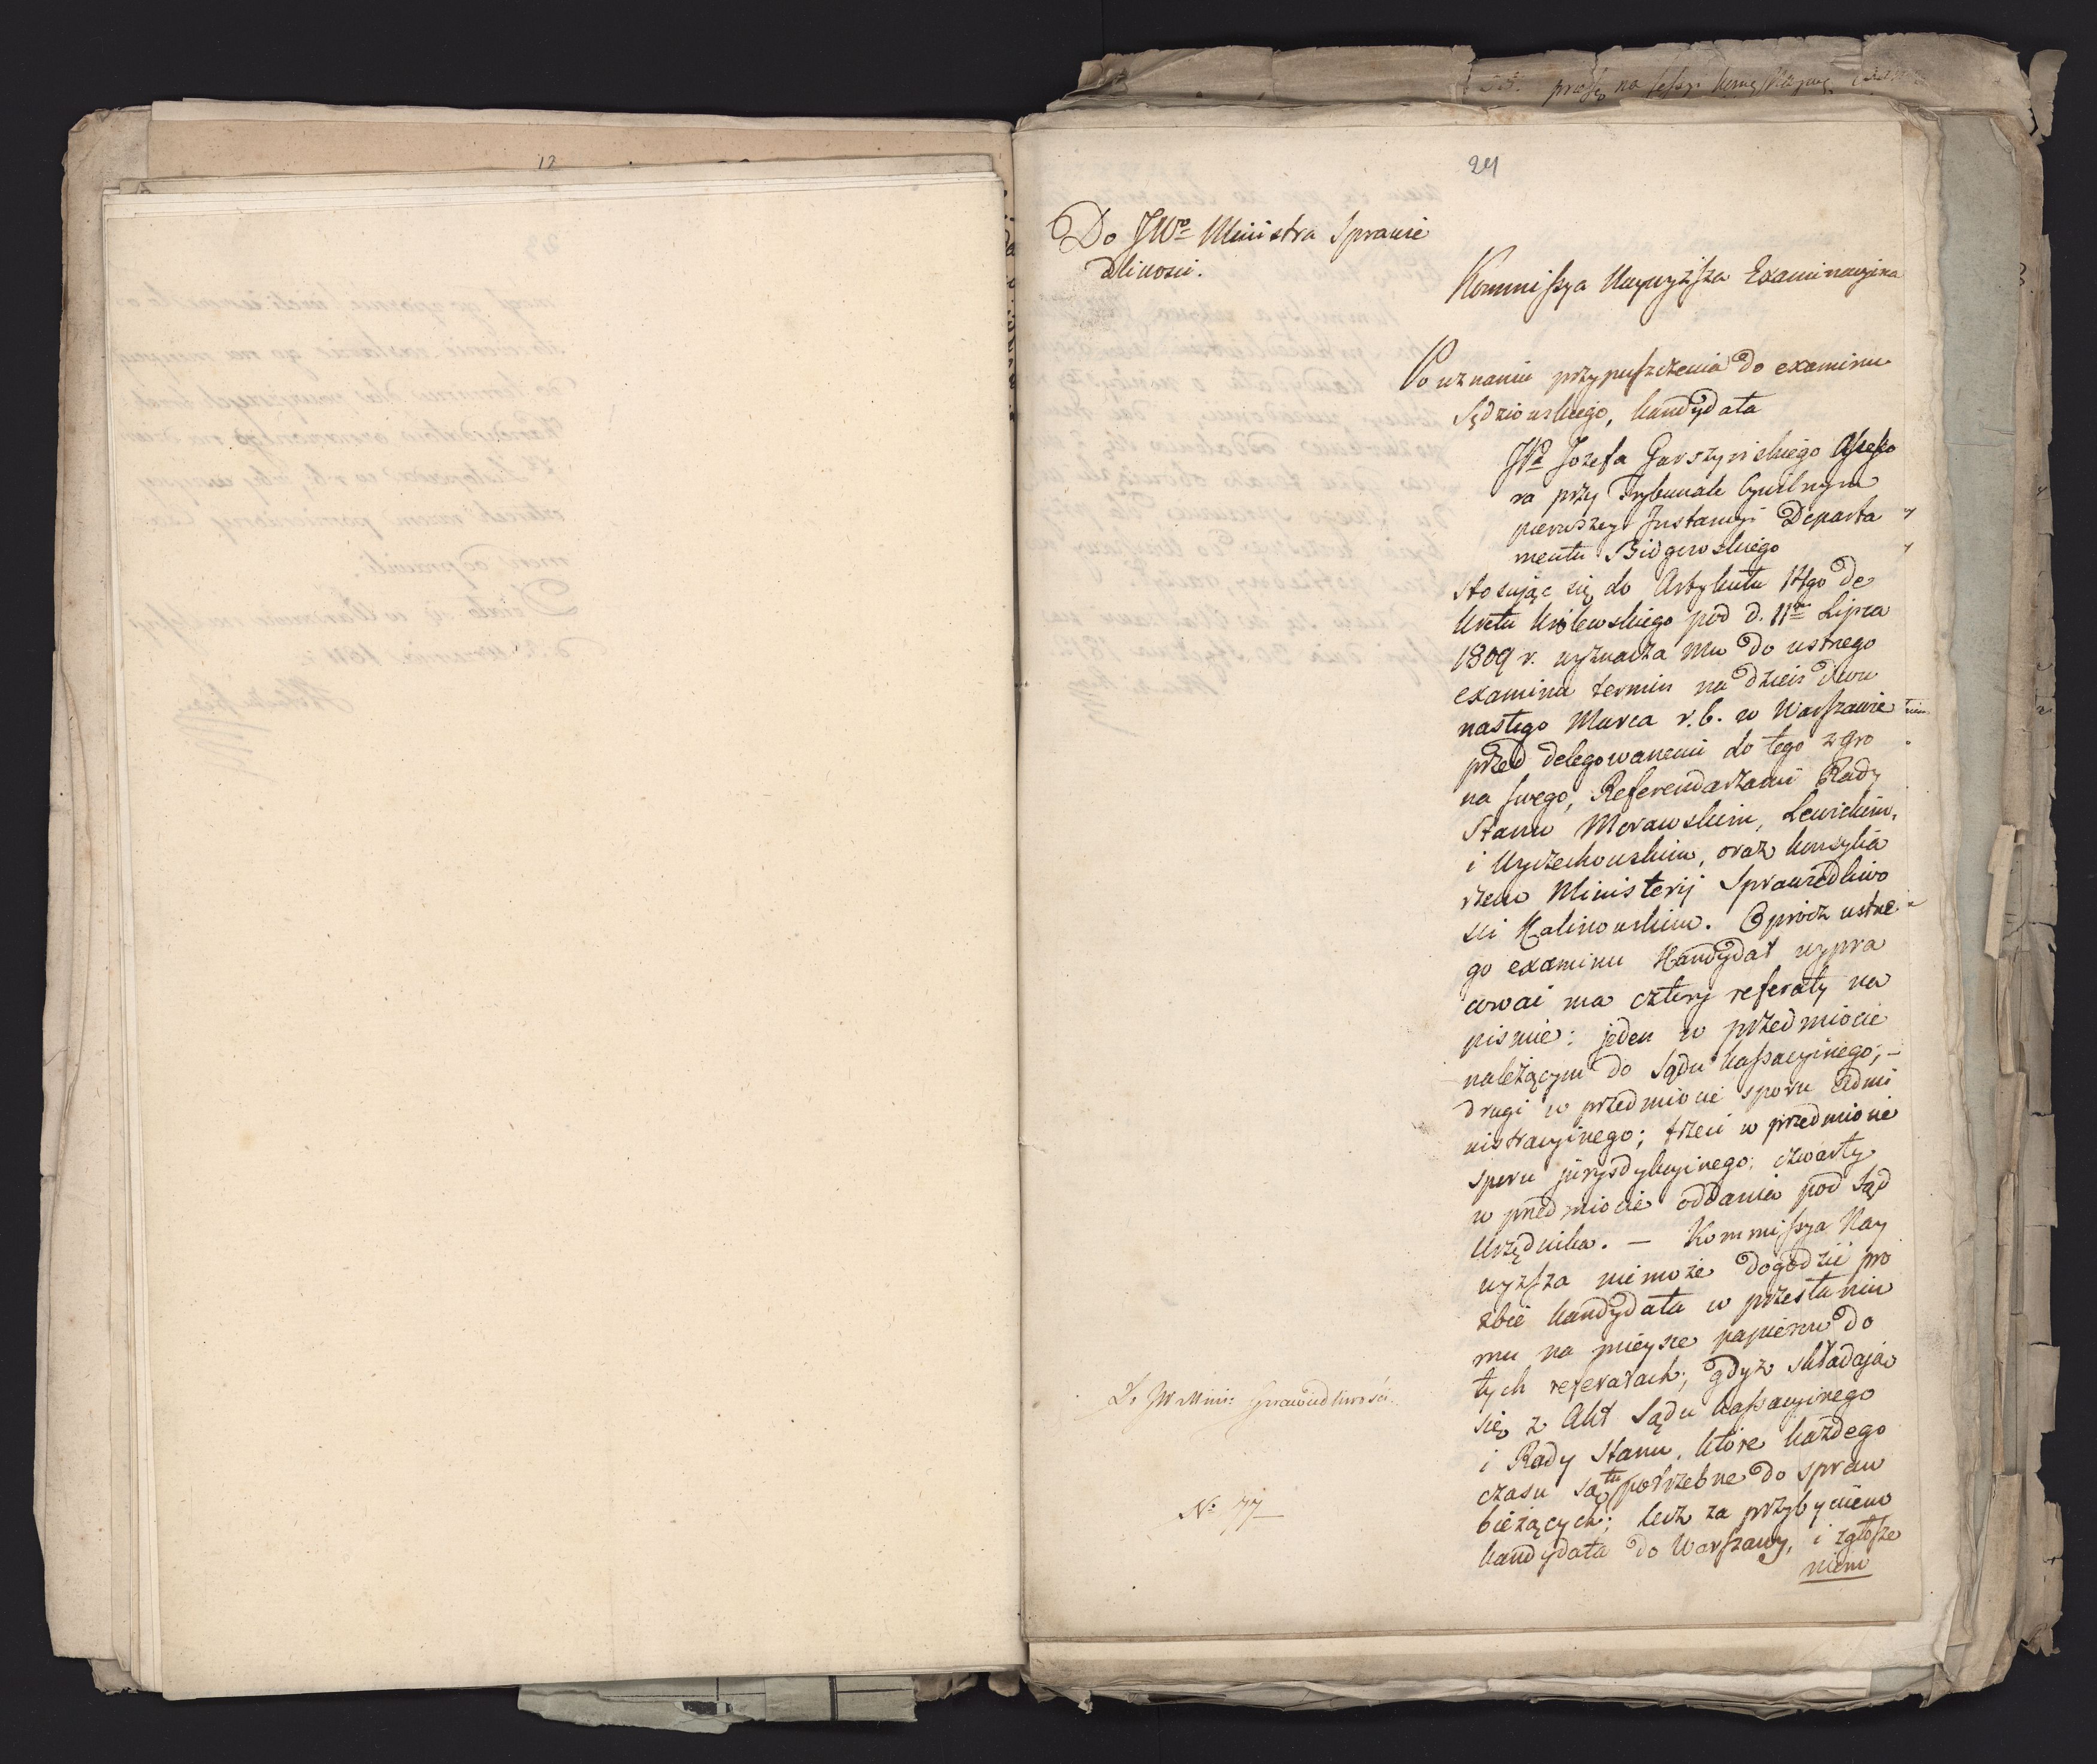 12
24
Do JWo Ministra Sprawie
dliwosci.
Kommissya Naywyższa Examinacyina
Po uznaniu przypuszczenia do examinu
Sędziowskiego, kandydata
JPa Jozefa Garszynskiego Assesso
ra przy Trybunale Cywilnym
pierwszey Instancyi Departa
mentu Bidgowskiego
stosuiąc się do Artykułu 14go De
kretu Krolewskiego pod d. 11m Lipca
1809 r. wyznacza mu do ustnego
examinu termin na dzien dwu
nastego Marca r. b. w Warszawie
przed delegowanemi do tego z gro
na swego, Referendarzami Rady
Stanu Morawskim, Lewickim,
i Wyczechowskim, oraz konsylia
rzem Ministerij Sprawiedliwo
sci Kalinowskim. Oprócz ustne
go examinu Kandydat wypra
cować ma cztery referaty na
pismie: jeden w przedmiocie
należącym do Sądu kassacyinego; -
drugi w przedmiocie sporu Admi
nistracyinego; trzeci w przedmiocie
sporu jurysdykcyinego; czwarty
w przedmiocie oddania pod Sąd
Urzędnika. — Kommissya Nay
wyższa niemoże dogodzić pro
zbie kandydata w przesłaniu
mu na mieysce papierow do
tych referatach; gdyż składaią
się z Akt Sądu kassacyinego
i Rady Stanu, które każdego
czasu są tu potrzebne do spraw
bieżących; lecz za przybyciem
kandydata do Warszawy, i zgłosze
niem
Do JW Minis: Sprawiedliwości
No 77